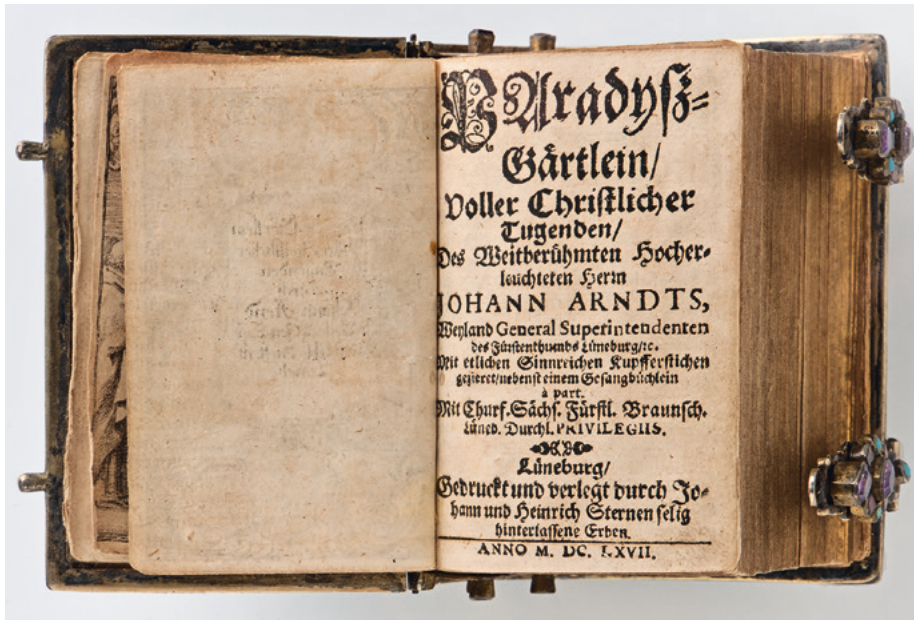 PAradyſz-
Gärtlein/
Voller Chriſtlicher
Tugenden/
Des Weitberühmten Hocher-
leuchteten Herrn
JOHANN ARNDTS,
Weyland General Superintendenten
des Fürſtenthumbs Lüneburg/ꝛc.
Mit etlichen Sinnreichen Kupfferſtichen
gezieret/nebenſt einem Geſangbüchlein
à part.
Mit Churf. Sächſ. Fürſtl. Braunſch.
Lüneb. Durchl. PRIVILEGIIS.
Lüneburg/
Gedruckt und verlegt durch Jo-
hann und Heinrich Sternen ſelig
hinterlaſſene Erben.
ANNO M. DC. LXVII.